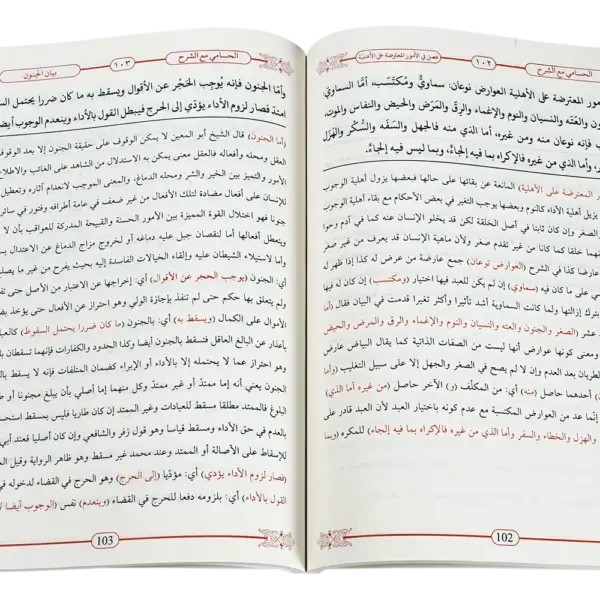 الحسامي مع الشرح
١٠٢
فصل في الأمور المعترضة على الأهلية
مور المعترضة على الأهلية العوارض نوعان: سماويٌّ ومُكتَسَب، أمّا السماويّ
ون والعَتَه والنسيان والنوم والإغماء والرِقّ والمَرَض والحيض والنفاس والموت،
فإنه نوعان منه ومن غيره، أما الذي منه فالجهل والسَفَه والسُكْر والهَزْل
وأما الذي من غيره فالإكراه بما فيه إلجاءٌ، وبما ليس فيه إلجاءٌ.
المعترضة على الأهلية) المانعة عن بقائها على حالها فبعضها يزيل أهلية الوجوب
يزيل أهلية الأداء كالنوم وبعضها يوجب التغير في بعض الأحكام مع بقاء أهلية الوجوب
الصغر وإن كان ثابتا في أصل الخلقة لكن قد يخلو الإنسان عنه كما في آدم وحوا
هما خلقا كما كانا من غير تقدم صغر ولأن ماهية الإنسان قد يعرف من غير صغر
عارضا كذا في الشرح (العوارض نوعان) جمع عارضة من عرض له كذا إذا ظهر له
ي على ما كان فيه (سماوي) إن لم يكن للعبد فيها اختيار (ومكتسب) إن كان له فيها
بترك إزالتها ولما كانت السماوية أشد تأثيرا وأكثر تغيرا قدمت في البيان فقال (أما
عشر (الصغر والجنون والعته والنسيان والنوم والإغماء والرق والمرض والحيض
ومعنى كونها عوارض أنها ليست من الصفات الذاتية كما يقال البياض عارض
لطريان بعد العدم وإن لا لم يصح في الصغر والجهل إلا على سبيل التغليب (وأما
أحدهما حاصل (منه) أي: من المكلّف (و) الآخر حاصل (من غيره أما الذي)
إنّما عد من العوارض المكتسبة مع عدم كونه باختيار العبد لأن العبد قادر على
والهزل والخطاء والسفر وأما الذي من غيره فالإكراه بما فيه إلجاء) للمكره (وبما
102
الحسامي مع الشرح
١٠٣
بيان الجنون
وأمّا الجنون فإنه يُوجِب الحَجْر عن الأقوال ويسقط به ما كان ضررا يحتمل الس
امتدّ فصار لزوم الأداء يؤدّي إلى الحرج فيبطل القول بالأداء وينعدم الوجوب أيضا
(أما الجنون) قال الشيخ أبو المعين لا يمكن الوقوف على حقيقة الجنون إلا بعد الوقوف
العقل ومحله وأفعاله فالعقل معنى يمكن به الاستدلال من الشاهد على الغائب والاطلاع
الأمور والتمييز بين الخير والشر ومحله الدماغ، والمعنى الموجب لانعدام آثاره وتعطيل
للإنسان على أفعال مضادة لتلك الأفعال من غير ضعف في عامة أطرافه وفتور في سائر
جنونا فهو اختلال القوة المميزة بين الأمور الحسنة والقبيحة المدركة للعواقب بأن لا
ويتعطل أفعالها أما لنقصان جبل عليه دماغه أو لخروج مزاج الدماغ عن الاعتدال بس
وأما لاستيلاء الشيطان عليه وإلقاء الخيالات الفاسدة إليه بحيث يفرح من غير ما يصل
أي: الجنون (يوجب الحجر عن الأقوال) أي: إخراجها عن الاعتبار من الأصل حتى
ولم يتعلق بها حكم حتى لم تنفذ بإجازة الولي وهو احتراز عن الأفعال حتى يؤخذ بض
الأموال على الكمال (ويسقط به) أي: بالجنون (ما كان ضررا يحتمل السقوط) كالعبا
بأعذار عن البالغ العاقل فتسقط بالجنون أيضا وكذا الحدود والكفارات فإنهما تسقطان با
وهو احتراز عما لا يحتمله إلا بالأداء أو الإبراء كضمان المتلفات فإنه لا يسقط بال
الجنون يعني أنه إما ممتدّ أو غير ممتدّ وكل منهما إما أصلي بأن يبلغ مجنونا أو ط
البلوغ فالممتد مطلقا مسقط للعبادات وغير الممتد إن كان طاريا فليس بمسقط استحس
بالعدم في حق الأداء ومسقط قياسا وهو قول زفر والشافعي وإن كان أصليا فعند أبي
للإسقاط على الأصالة أو الممتد وعند محمد غير مسقط وهو ظاهر الرواية وقيل ال
(فصار لزوم الأداء يؤدي) أي: مؤدّيا (إلى الحرج) وهو الحرج في القضاء لدخوله في
القول بالأداء) أي: بلزومه دفعا للحرج في القضاء (وينعدم) نفس (الوجوب أيضا ل
103